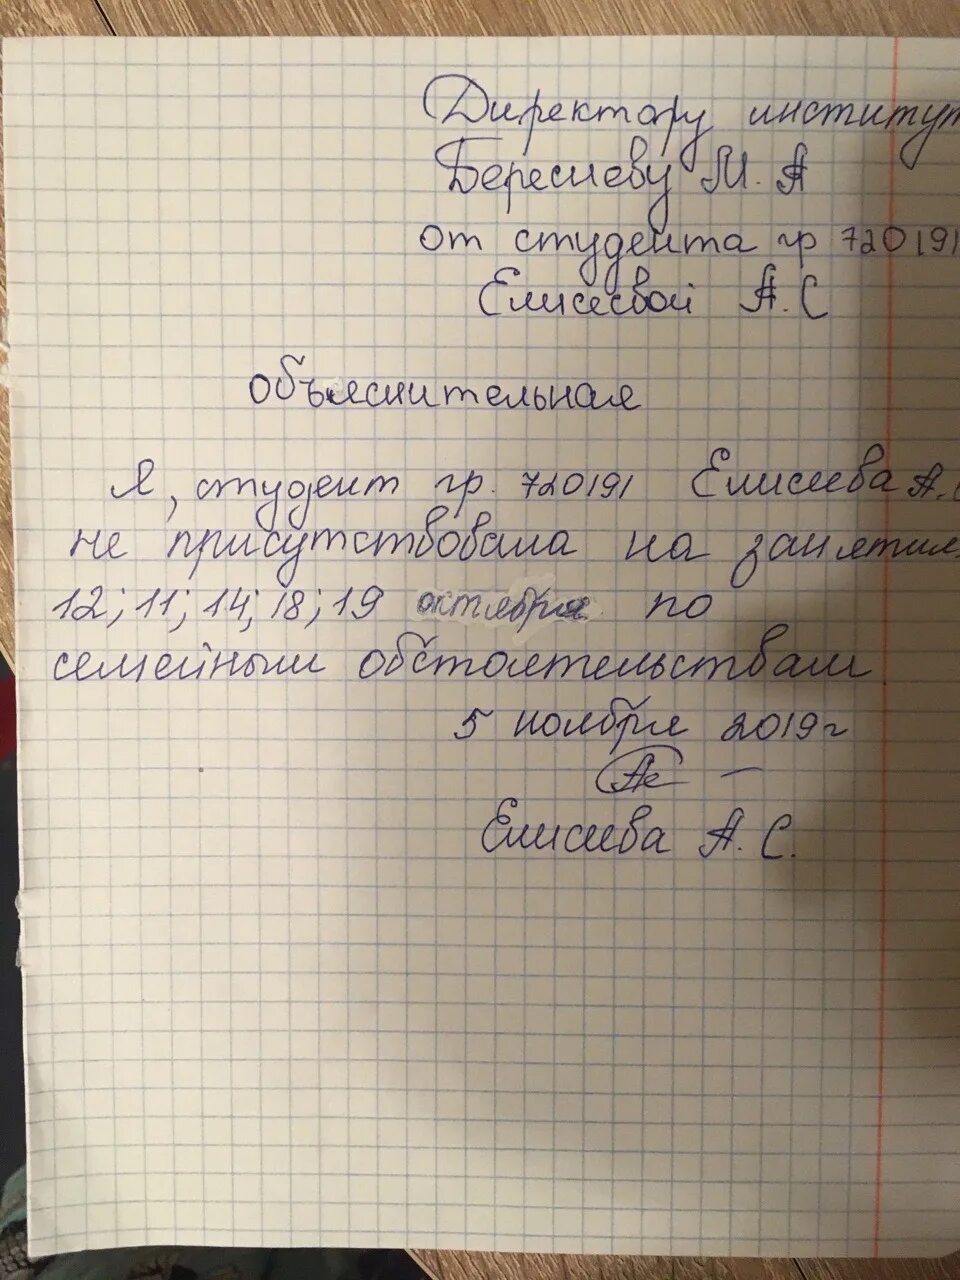 Директору институт
Бересневу М. А
от студента гр 720191
Елисеевой А. С
объяснительная
Я, студент гр. 720191 Елисеева А. С
не присутствовала на занятия
12; 11; 14; 18; 19 октября по
семейным обстоятельствам
5 ноября 2019 г
Елисеева А. С.